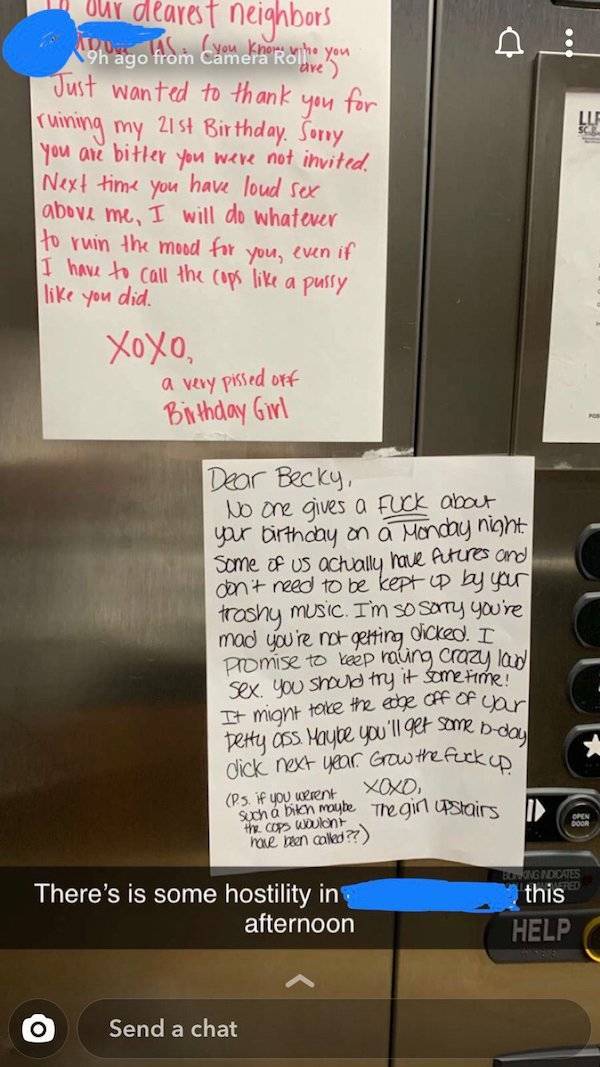 To our dearest neighbors
above us. (you know who you
are)
9h ago from Camera Roll
Just wanted to thank you for
ruining my 21st Birthday. Sorry
you are bitter you were not invited.
Next time you have loud sex
above me, I will do whatever
to ruin the mood for you, even if
I have to call the cops like a pussy
like you did.
XOXO,
a very pissed off
Birthday Girl
Dear Becky,
No one gives a FUCK about
your birthday on a Monday night.
Some of us actually have futures and
don't need to be kept up by your
trashy music. I'm so sorry you're
mad you're not getting dicked. I
promise to keep having crazy loud
sex. You should try it sometime!
It might take the edge off of your
petty ass. Maybe you'll get some b-day
dick next year. Grow the fuck up.
XOXO,
The girl upstairs
(P.S. if you werent
such a bitch maybe
the cops wouldnt
have been called??)
OPEN
DOOR
INDICATES
HELP
There's is some hostility in
this
afternoon
Send a chat